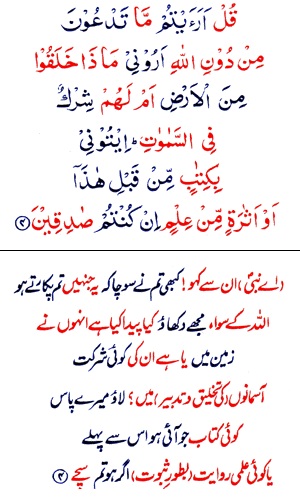 قُلْ اَرَءَيْتُمْ مَّا تَدْعُوْنَ
مِنْ دُوْنِ اللّٰهِ اَرُوْنِيْ مَاذَا خَلَقُوْا
مِنَ الْاَرْضِ اَمْ لَهُمْ شِرْكٌ
فِي السَّمٰوٰتِ ؕ اِيْتُوْنِيْ
بِكِتٰبٍ مِّنْ قَبْلِ هٰذَاۤ
اَوْ اَثٰرَةٍ مِّنْ عِلْمٍ اِنْ كُنْتُمْ صٰدِقِيْنَ ۝۴
(اے نبیؐ) ان سے کہو! کبھی تم نے سوچا کہ یہ جنہیں تم پکارتے ہو
اللہ کے سواء مجھے دکھاؤ کیا پیدا کیا ہے انہوں نے
زمین میں یا ہے ان کی کوئی شرکت
آسمانوں (کی تخلیق و تدبیر) میں؟ لاؤ میرے پاس
کوئی کتاب جو آئی ہو اس سے پہلے
یا کوئی علمی روایت (بطور ثبوت) اگر ہو تم سچے ۝۴